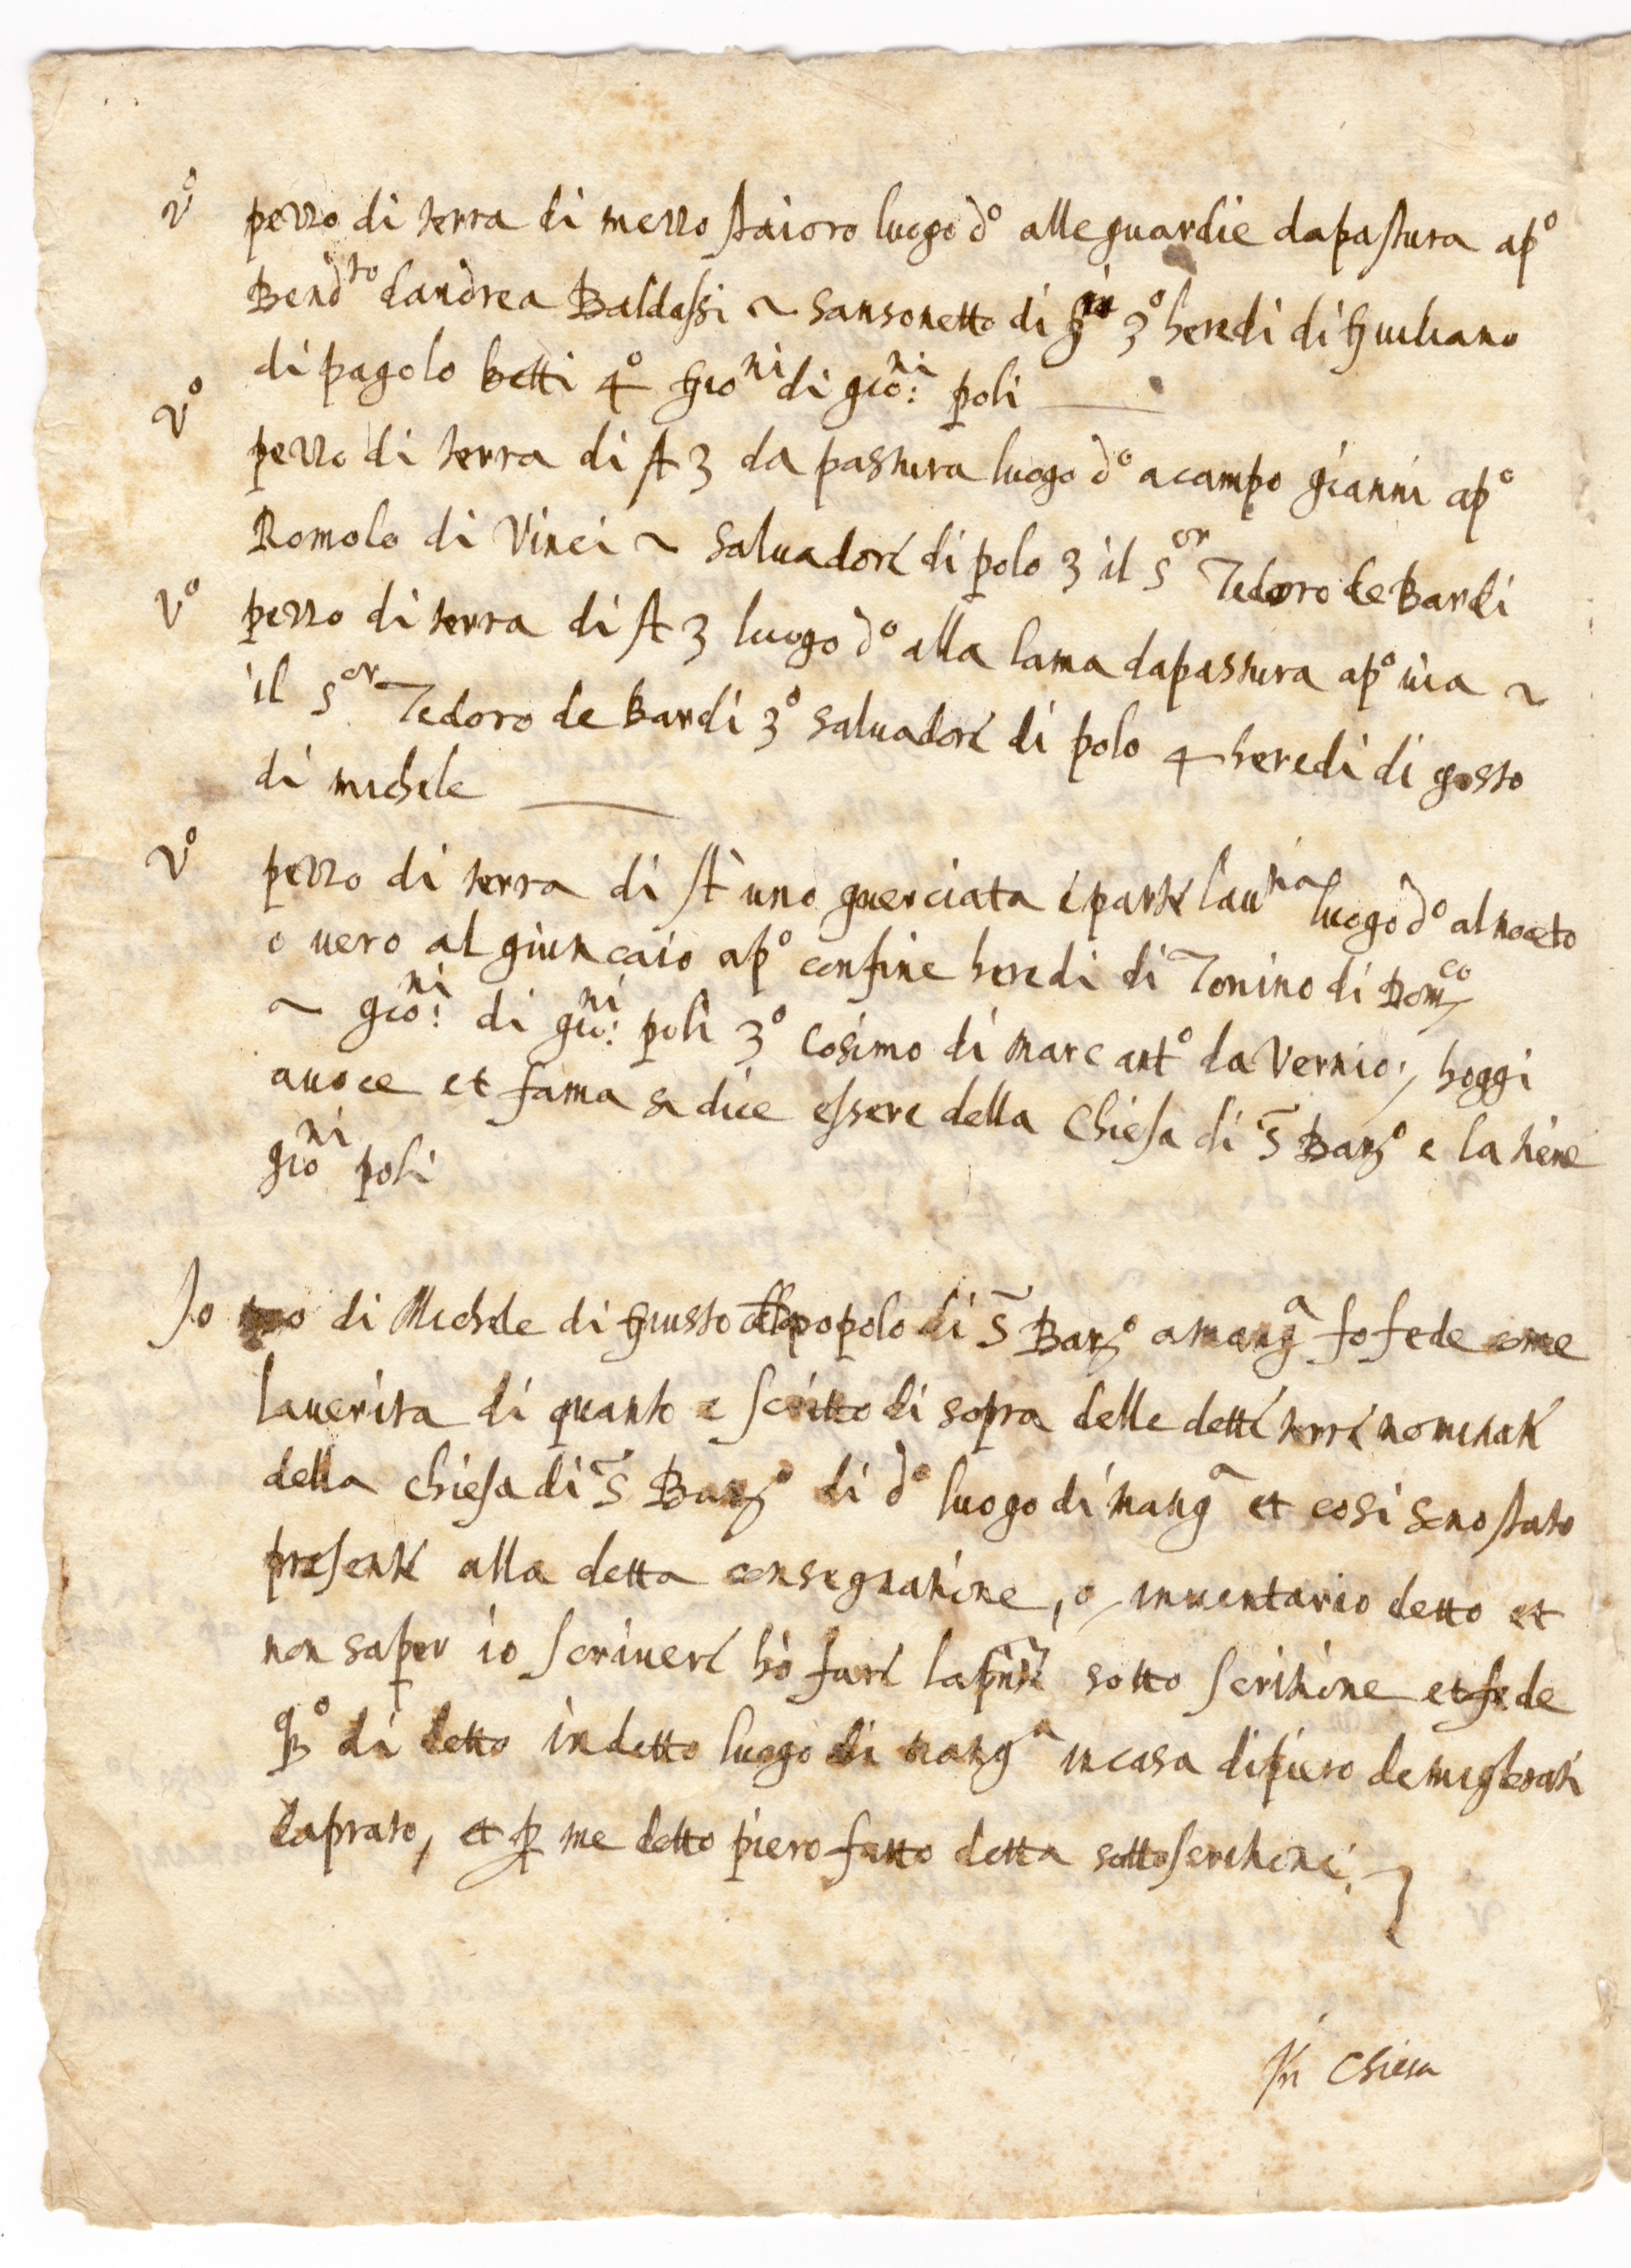 vº pezzo di terra di mezzo staioro luogo dº alle guardie dapastura apº
Bendto dandrea Baldassi ~ sansonetto di 3º heredi di Giuliano
di pagolo betti 4º Gioni di gioni: poli
vº pezzo di terra di st 3 da pastura luogo dº acampo gianni apº
Romolo di Vinci ~ saluadore di polo 3 il sor Tedoro de Bardi
vº pezzo di terra di st 3 luogo dº alla lama dapastura apº uia ~
il sor Tedoro de Bardi 3º saluadore di polo 4 heredi di gosto
di michele
vº pezzo di terra di st uno querciata e parte lautia luogo dº al noceto
o uero al giuncaio apº confine heredi di Tonino di Domco
~ gioni: di gioni: poli 3º Cosimo di marc antº da Vernio, hoggi
auoce et fama si dice essere della Chiesa di S Barº e la tiene
gioni poli
Io di Michele di Giusto popolo di S Barº a manga fo fede come
lauerita di quanto e scritto di sopra delle dette terre nominate
della chiesa di S Barº di dº luogo di manga et cosi sono stato
presente alla detta consegnatione, o inuentario detto et
non saper io scriuere hò fare la pnte sotto scritione et fede
di detto in detto luogo di manga in casa di piero de migliorati
daprato, et p me detto piero fatto detta sottoscritione
In Chiesa